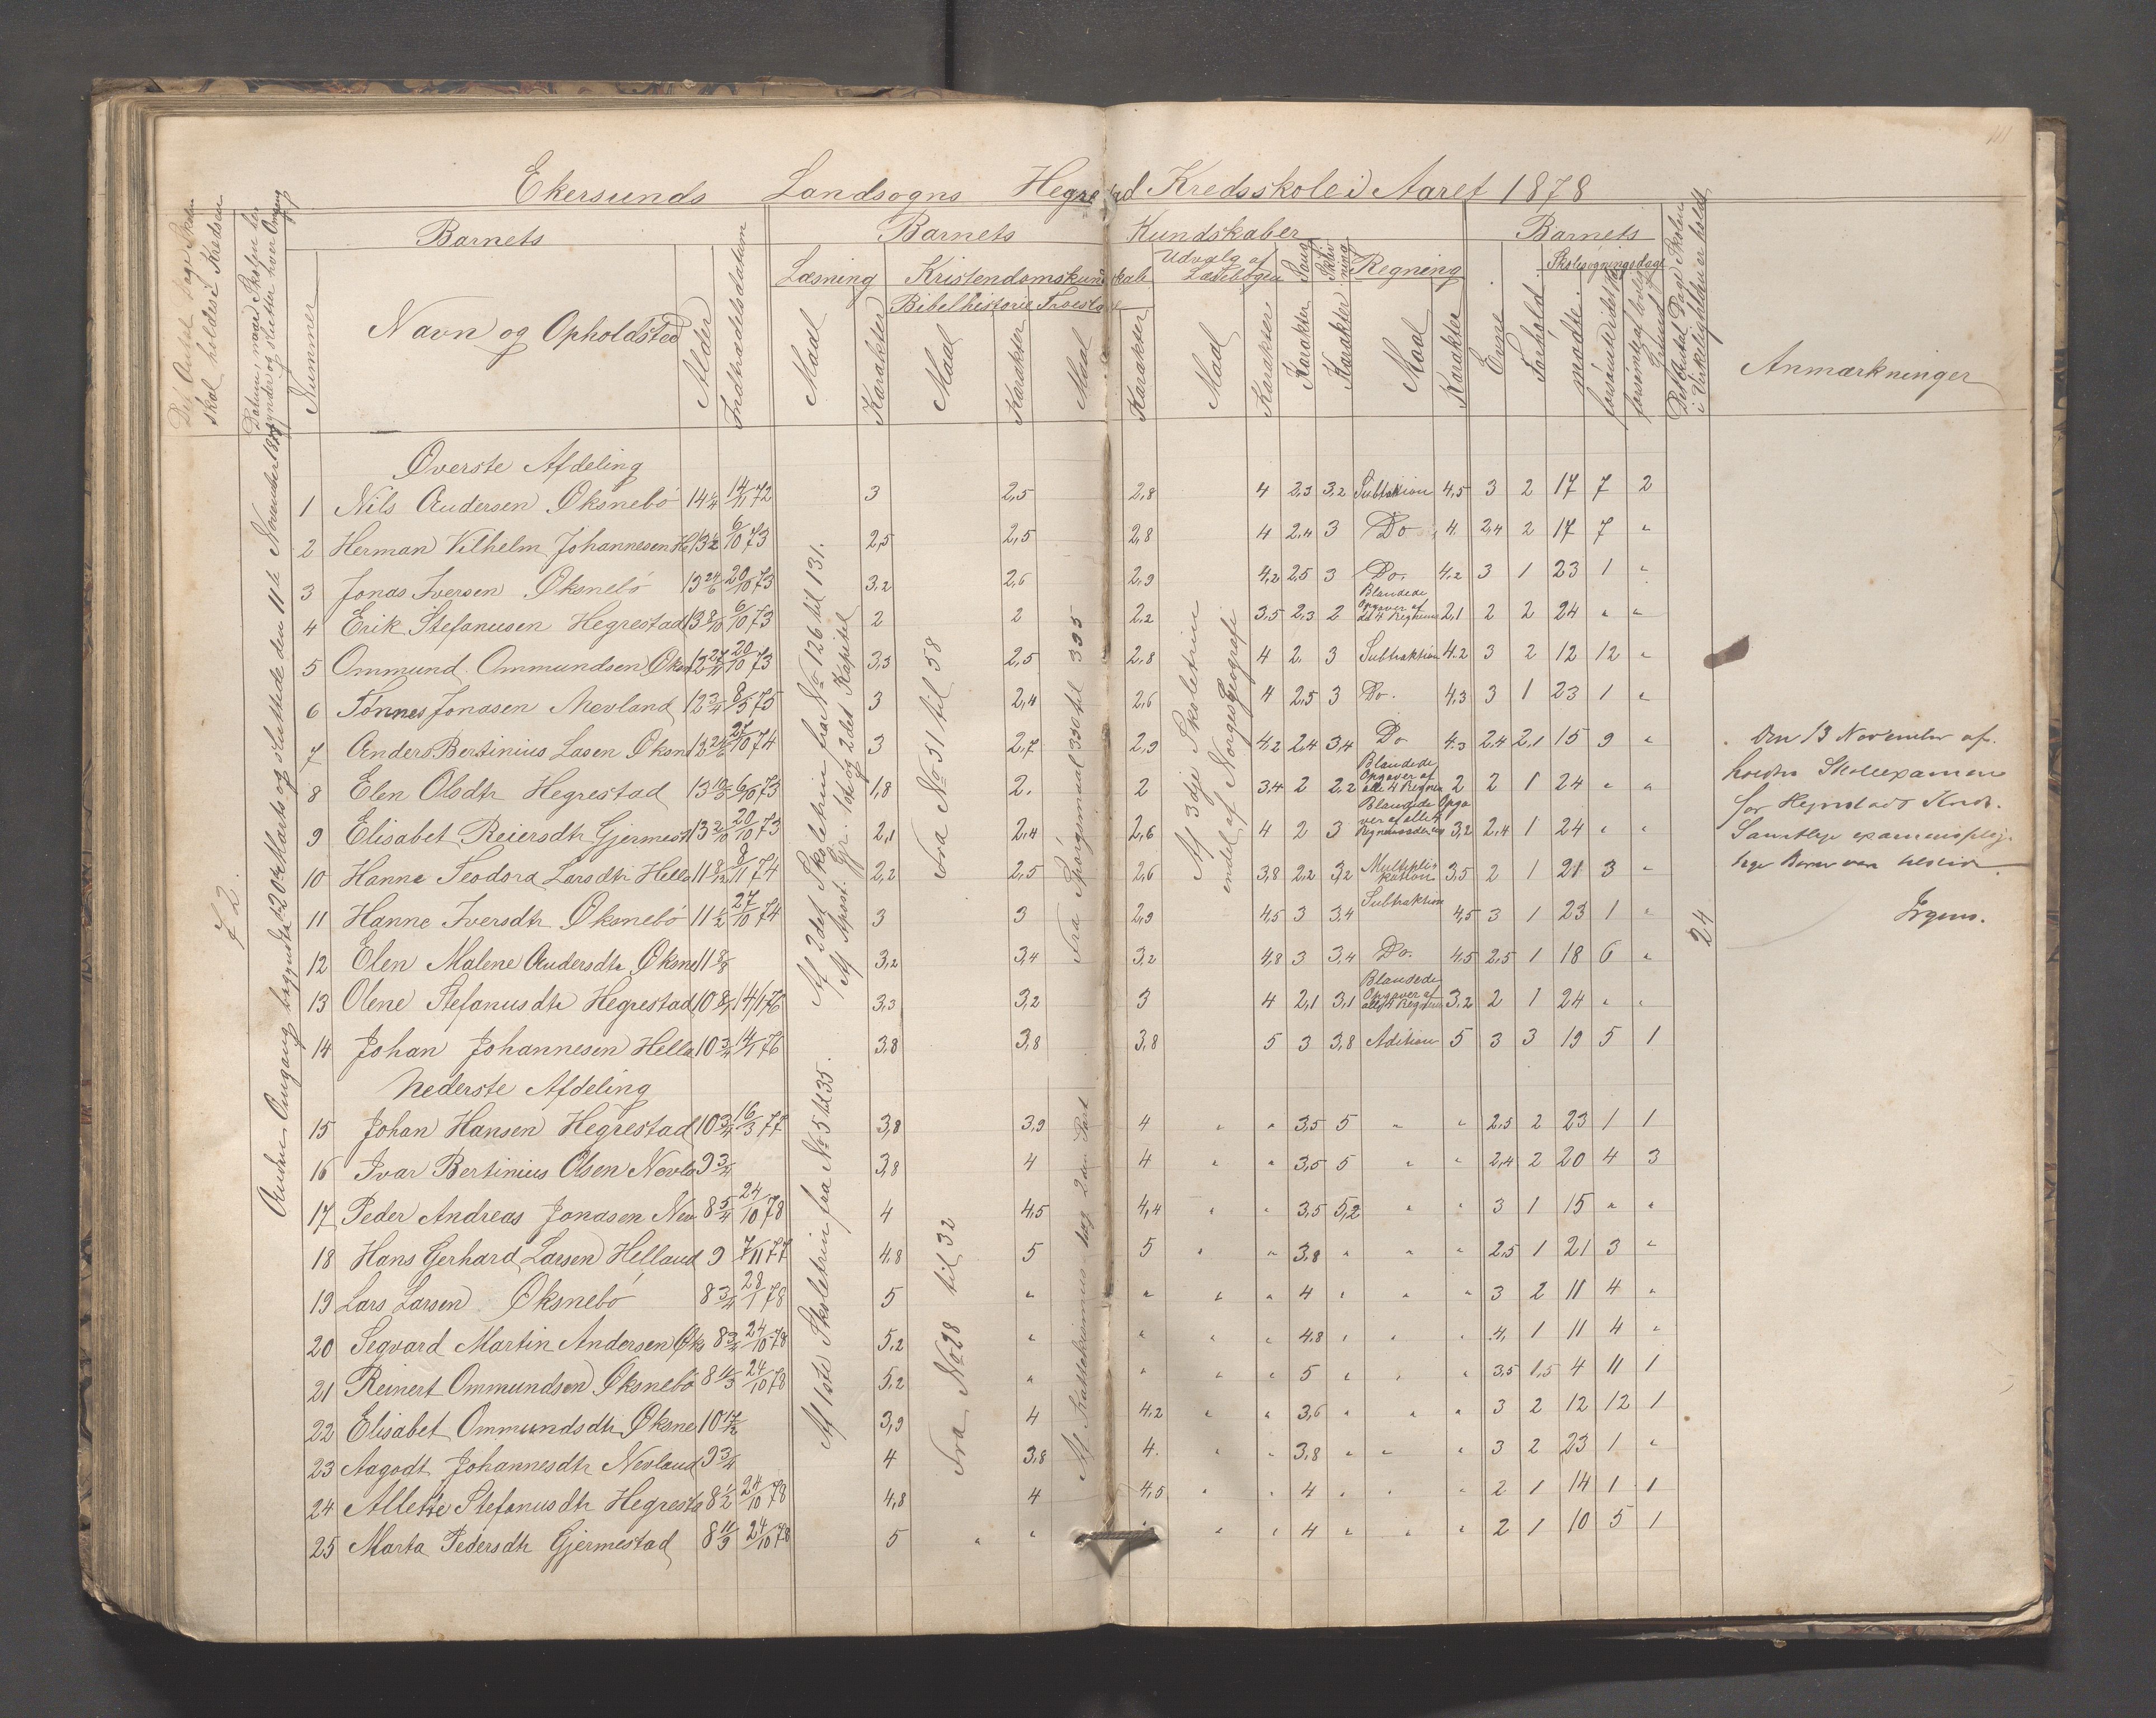 Ekersunds Landsogns Hegrestad Kredsskole i Aaret 1878
Det Antal Dage Skolen skal holdes i Kredsen
Datum, naar Skolen begynder og slutter hver Omgang
Nummer
Barnets
Navn og Opholdsted
Alder
Indtrædelsesdatum
Barnets Kundskaber
Læsning
Maal
Karakter
Kristendomskundskab
Bibelhistorie
Troeslære
Maal
Karakter
Maal
Karakter
Udvalg af Læsebogen
Maal
Karakter
Sang
Karakter
Skrivning
Karakter
Regning
Maal
Karakter
Barnets
Evne
Forhold
Skolesøgningsdage
mødte
forsømte i det hele
forsømte af lovlig Grund
Det Antal Dage Skolen i Virkeligheden er holdt
Anmærkninger
72
Anden Omgang begyndte 20de Marts og sluttede den 11te November 1878
Øverste Afdeling
1 Nils Andersen Øksnebö 14 1/4 14/11 72 3 2,5 2,8 4 2,3 3,2 Subtraktion 4,5 3 2 17 7 2
2 Herman Vilhelm Johannesen He 13 1/2 6/10 73 2,5 2,5 2,8 4 2,4 3 Do 4 2,4 2 17 7 "
3 Jonas Iversen Øksnebö 13 24/6 20/10 73 3,2 2,6 2,9 4,2 2,5 3 Do. 4,2 3 1 23 1 "
4 Erik Stefanusen Hegrestad 13 8/10 6/10 73 2 2 2,2 3,5 2,3 2 Blandede Opgaver af de 4 Regnine 2,1 2 2 24 " "
5 Ommund Ommundsen Øksn 20/10 73 3,3 2,5 2,8 4 2 3 Subtraktion 4,2 3 2 12 12 "
6 Tönnes Jonasen Nevland 12 3/4 8/5 75 3 2,4 2,6 4 2,5 3 Do. 4,3 3 1 23 1 "
7 Anders Bertinius Lasen Øksn 27/10 74 3 2,7 2,9 4,2 2,4 3,4 Do 4,3 2,4 2,1 15 9 "
8 Elen Olsdtr Hegrestad 13 10/3 6/10 73 1,8 2. 2 3,4 2 2,2 Blandede Opgaver af alle 4 Regnin 2 2 1 24 " "
9 Elisabet Reiersdtr Gjermest 13 2/10 20/10 73 2,1 2,4 2,6 4 2 3 Blandede Opgaver af alle 4 3,2 2,4 1 24 " "
10 Hanne Teodora Larsdtr Hella 11 8/12 9/11 74 2,2 2,5 2,6 3,8 2,2 3,2 Multiplikation 3,5 2 1 21 3 "
11 Hanne Iversdtr Øksnebö 11 1/2 27/10 74 3 3 2,9 4,5 3 3,4 Subtraktion 4,5 3 1 23 1 "
12 Elen Malene Andersdtr Øksne 11 8/9 3,2 3,4 3,2 4,8 3 3,4 Do. 4,5 2,5 1 18 6 "
13 Olene Stefanusdtr Hegrestad 10 8/9 14/1 76 3,3 3,2 3 4 2,1 3,1 Blandede Opgaver af alle 4 Regnin 3,2 2 1 24 " "
14 Johan Johannesen Hella 10 3/4 14/1 76 3,8 3,8 3,8 5 3 3,8 Adition 5 3 3 19 5 1
Nederste Afdeling
15 Johan Hansen Hegrestad 10 3/4 16/3 77 3,8 3,9 4 " " 3,5 5 " " 2,5 2 23 1 1
16 Ivar Bertinius Olsen Nevla 9 3/4 3,8 4 4 " " 3,5 5 " " 2,4 2 20 4 3
17 Peder Andreas Jonasen Nev 8 5/4 24/10 78 4 4,5 4,4 " " 3,5 5,2 " " 3 1 15 " "
18 Hans Gerhard Larsen Helland 9 7/11 77 4,8 5 5 " " 3,8 " " " 2,5 1 21 3 "
19 Lars Larsen Øksnebö 8 3/4 28/1 78 5 " " " " 4 " " " 3 2 11 4 "
20 Segvard Martin Andersen Øks 8 3/4 24/10 78 5,2 " " " " 4,8 " " " 4, 1 11 4 "
21 Reinert Ommundsen Øksnebö 8 11/3 24/10 78 5,2 " " " " 5 " " " 3,5 1,5 4 11 1
22 Elisabet Ommundsdtr Øksne 10 1/2 3,9 4 4,2 " " 3,6 " " " 3 2 12 12 1
23 Aagodt Johannesdtr Nevland 9 3/4 4 3,8 4. " " 3,8 " " " 3 2 23 1 "
24 Allette Stefanusdtr Hegresta 8 1/2 24/10 78 4,8 4 4,5 " " 4 " " " 2 1 14 1 1
25 Marta Pedersdtr Gjermestad 8 11/9 24/10 78 5 " " " " " 4 " " " 2 1 10 5 1
Af 2det Skoletrin fra No 126 til 131.
Af Apost. Gr. 1ste og 2det Kapitel
Fra No 51 til 58
Fra Spörgsmaal 330 til 335
Af 3dje Skoletrin
endel af Norges Geografi
Af 1ste Skoletrin fra No 5 til 35.
Fra No 28 til 32
Af Katekismus 2den Part
24
Den 13 November af-
holdtes Skoleexamen
for Hegrestads Kreds.
Samtlige examenspligtige Børn var tilstede.